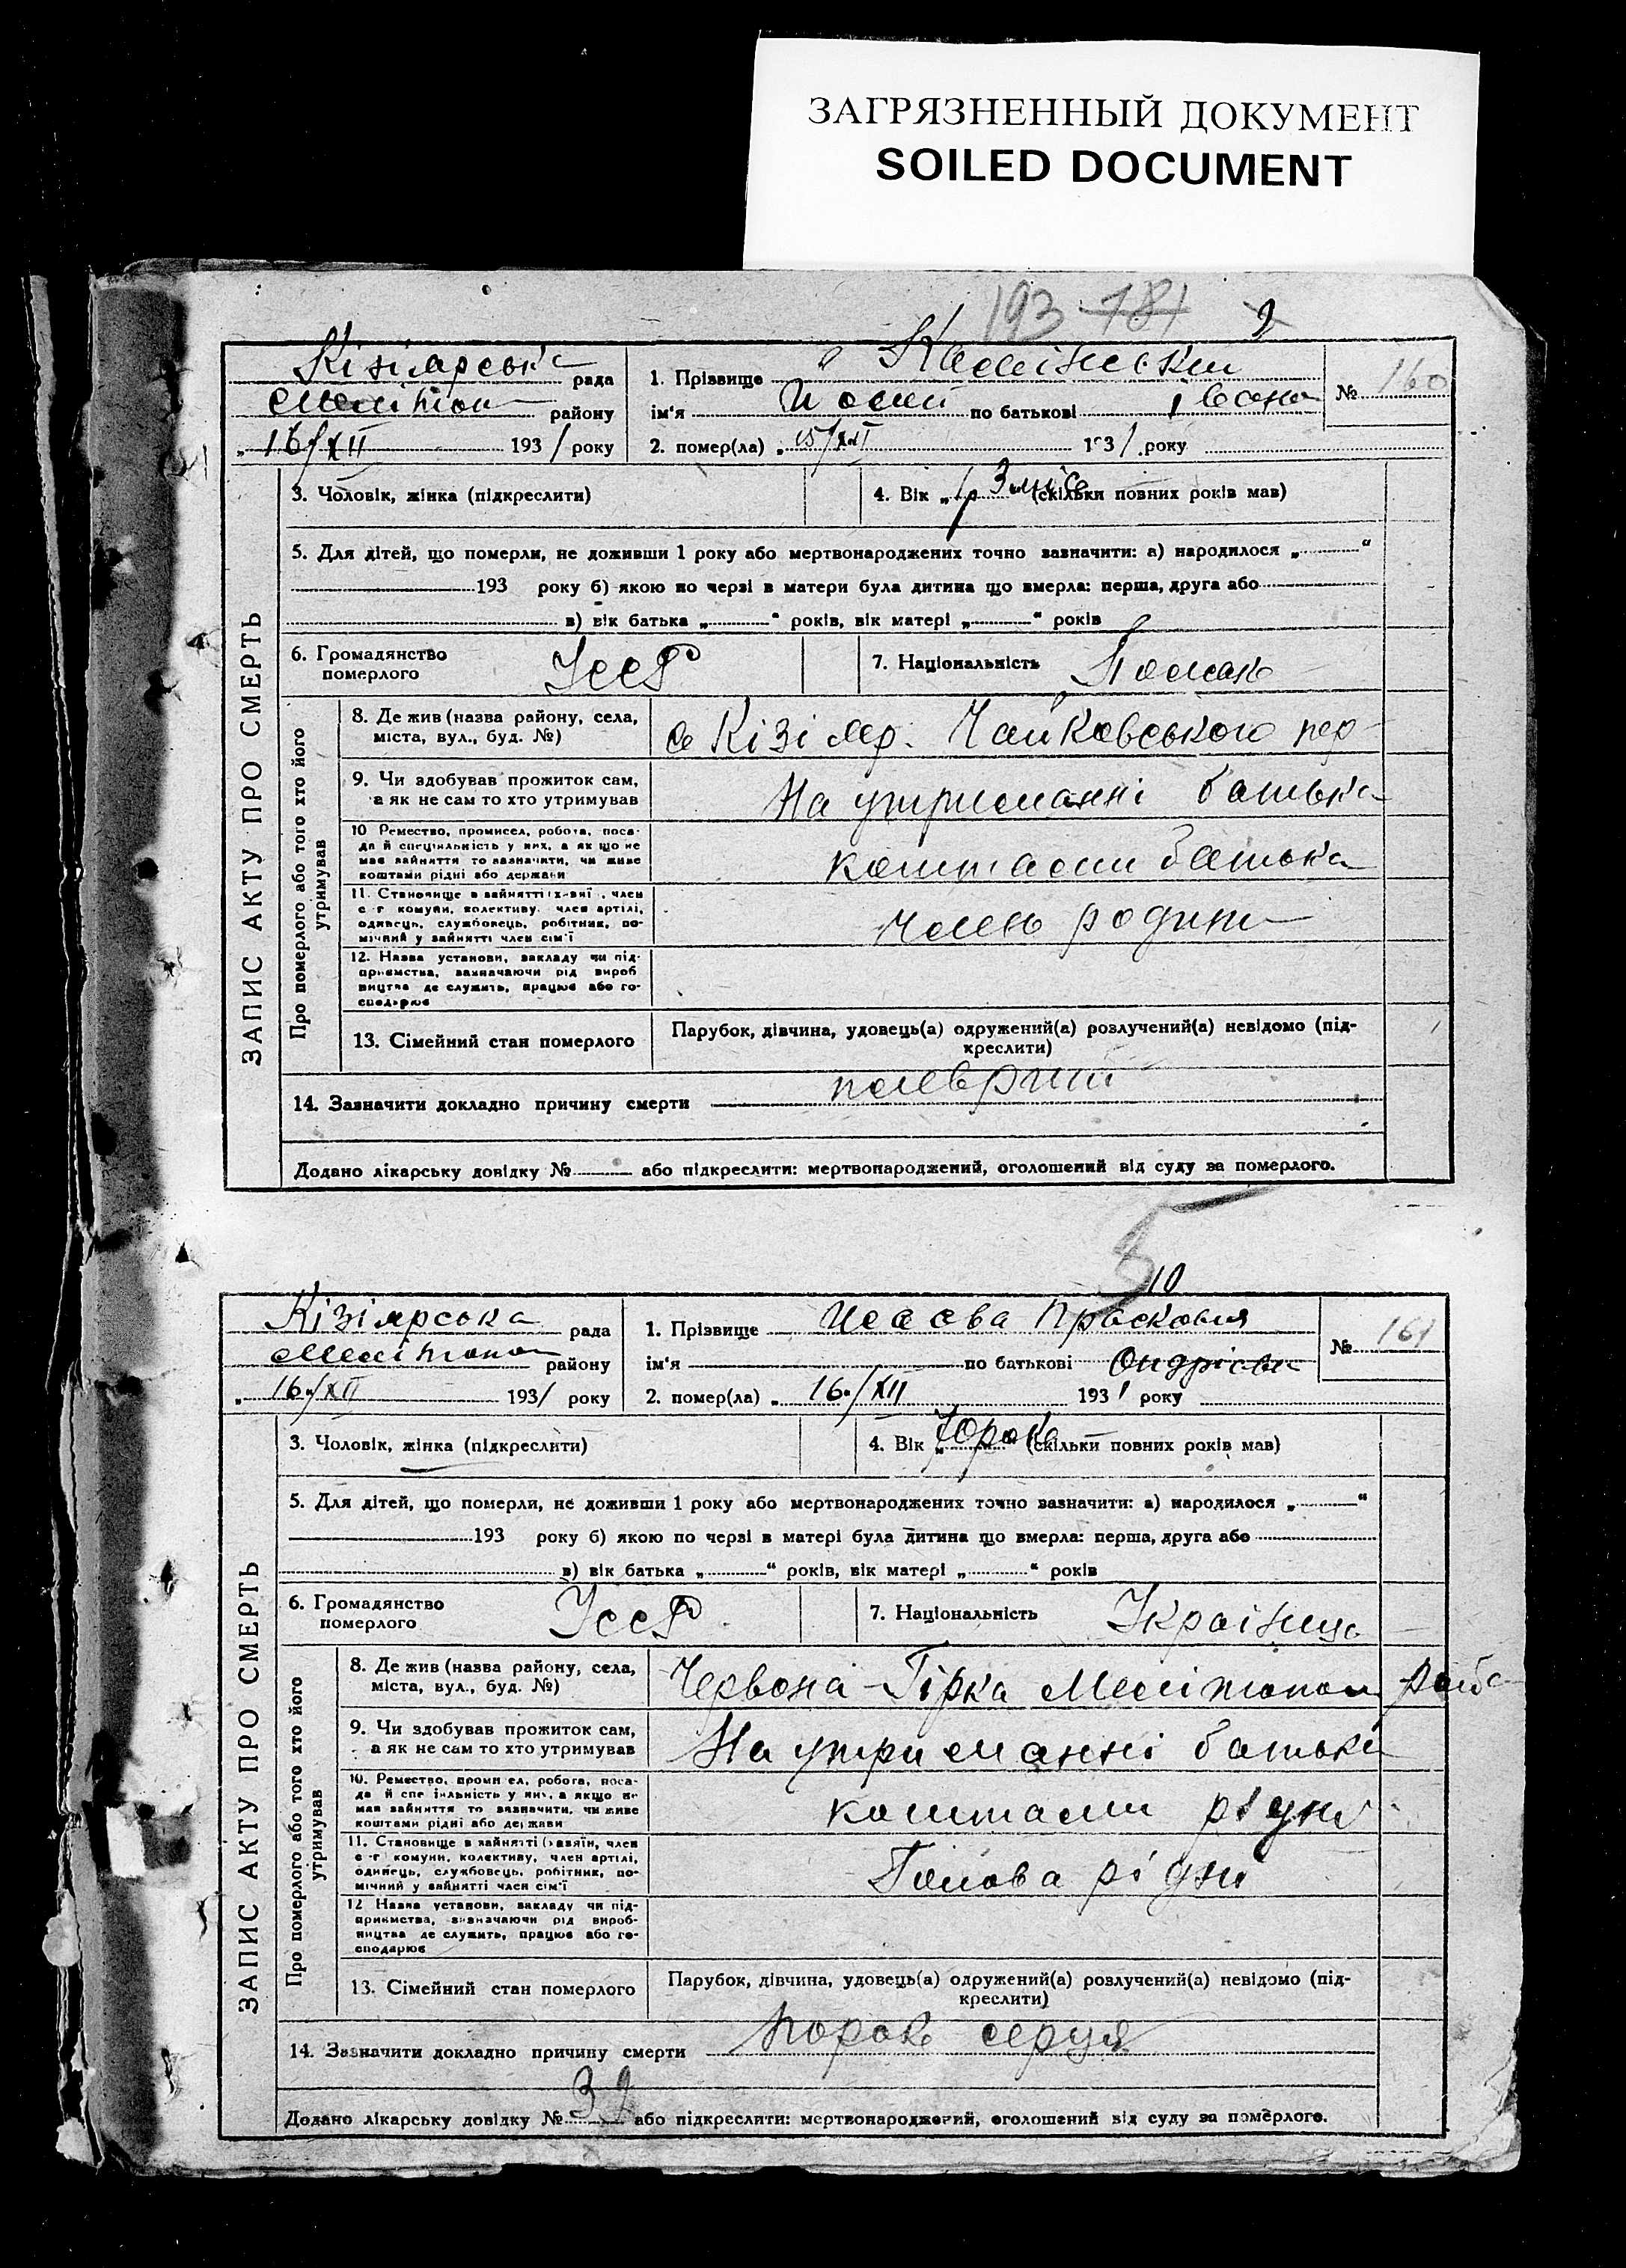 ЗАГРЯЗНЕННЫЙ ДОКУМЕНТ
SOILED DOCUMENT
193 181
9
Кізіярська рада
Меліпоп району
„ 16/XII 1931 року
1. Прізвище
ім'я по батькові
2. помер(ла) „ 15/XII 1931 року
№ 160
ЗАПИС АКТУ ПРО СМЕРТЬ
3. Чоловік, жінка (підкреслити)
4. Вік „ (скільки повних років мав)
5. Для дітей, що померли, не доживши 1 року або мертвонароджених точно зазначити: а) народилося „ “
193 року б) якою по черзі в матери була дитина що вмерла: перша, друга або
в) вік батька „ “ років, вік матері „ “ років
6. Громадянство померлого УССР
7. Національність Поляк
Про померлого або того хто його утримував
8. Де жив (назва району, села, міста, вул., буд. №)
с Кізіяр. Чайковського пер
9. Чи здобував прожиток сам, а як не сам то хто утримував
На утриманні батька
10 Ремество, промисел, робота, поса-
да й спеціяльність у них, а як що не
мав зайняття то зазначити, чи живе
коштами рідні або держави
коштами батька
11. Становище в зайнятті (хазяїн, член
с-г комуни, колективу, член артілі,
одинець, службовець, робітник, по-
мічний у зайнятті член сім'ї
член родини
12. Назва установи, закладу чи під-
приємства, зазначаючи рід вироб
ництва де служить, працює або го-
сподарює
13. Сімейний стан померлого
Парубок, дівчина, удовець(а) одружений(а) розлучений(а) невідомо (під-
креслити)
14. Зазначити докладно причину смерти
Додано лікарську довідку № або підкреслити: мертвонароджений, оголошений від суду за померлого.
5
10
Кізіярська рада
району
„ 16/XII 1931 року
1. Прізвище Исаєва Прасковия
ім'я по батькові Ондрієвн
2. помер(ла) „ 16/XII 1931 року
№ 161
ЗАПИС АКТУ ПРО СМЕРТЬ
3. Чоловік, жінка (підкреслити)
4. Вік „ (скільки повних років мав)
5. Для дітей, що померли, не доживши 1 року або мертвонароджених точно зазначити: а) народилося „ “
193 року б) якою по черзі в матері була дитина що вмерла: перша, друга або
в) вік батька „ “ років, вік матері „ “ років
6. Громадянство померлого УССР
7. Національність Українц
Про померлого або того хто його утримував
8. Де жив (назва району, села, міста, вул., буд. №)
Червона-Гірка Мелітопол
9. Чи здобував прожиток сам, а як не сам то хто утримував
На утриманні батькі
10. Ремество, промисел, робота, поса-
да й спеціяльність у них, а якщо не
мав зайняття то зазначити, чи живе
коштами рідні або держави
коштами рідні
11. Становище в зайнятті (хазяїн, член
с-г комуни, колективу, член артілі,
одинець, службовець, робітник, по-
мічний у зайнятті член сім'ї
Голова рідні
12 Назва установи, закладу чи під-
приємства, зазначаючи рід вироб-
ництва де служить, працює або го-
сподарює
13. Сімейний стан померлого
Парубок, дівчина, удовець(а) одружений(а) розлучений(а) невідомо (під-
креслити)
14. Зазначити докладно причину смерти порок серця
Додано лікарську довідку № 32 або підкреслити: мертвонароджений, оголошений від суду за померлого.